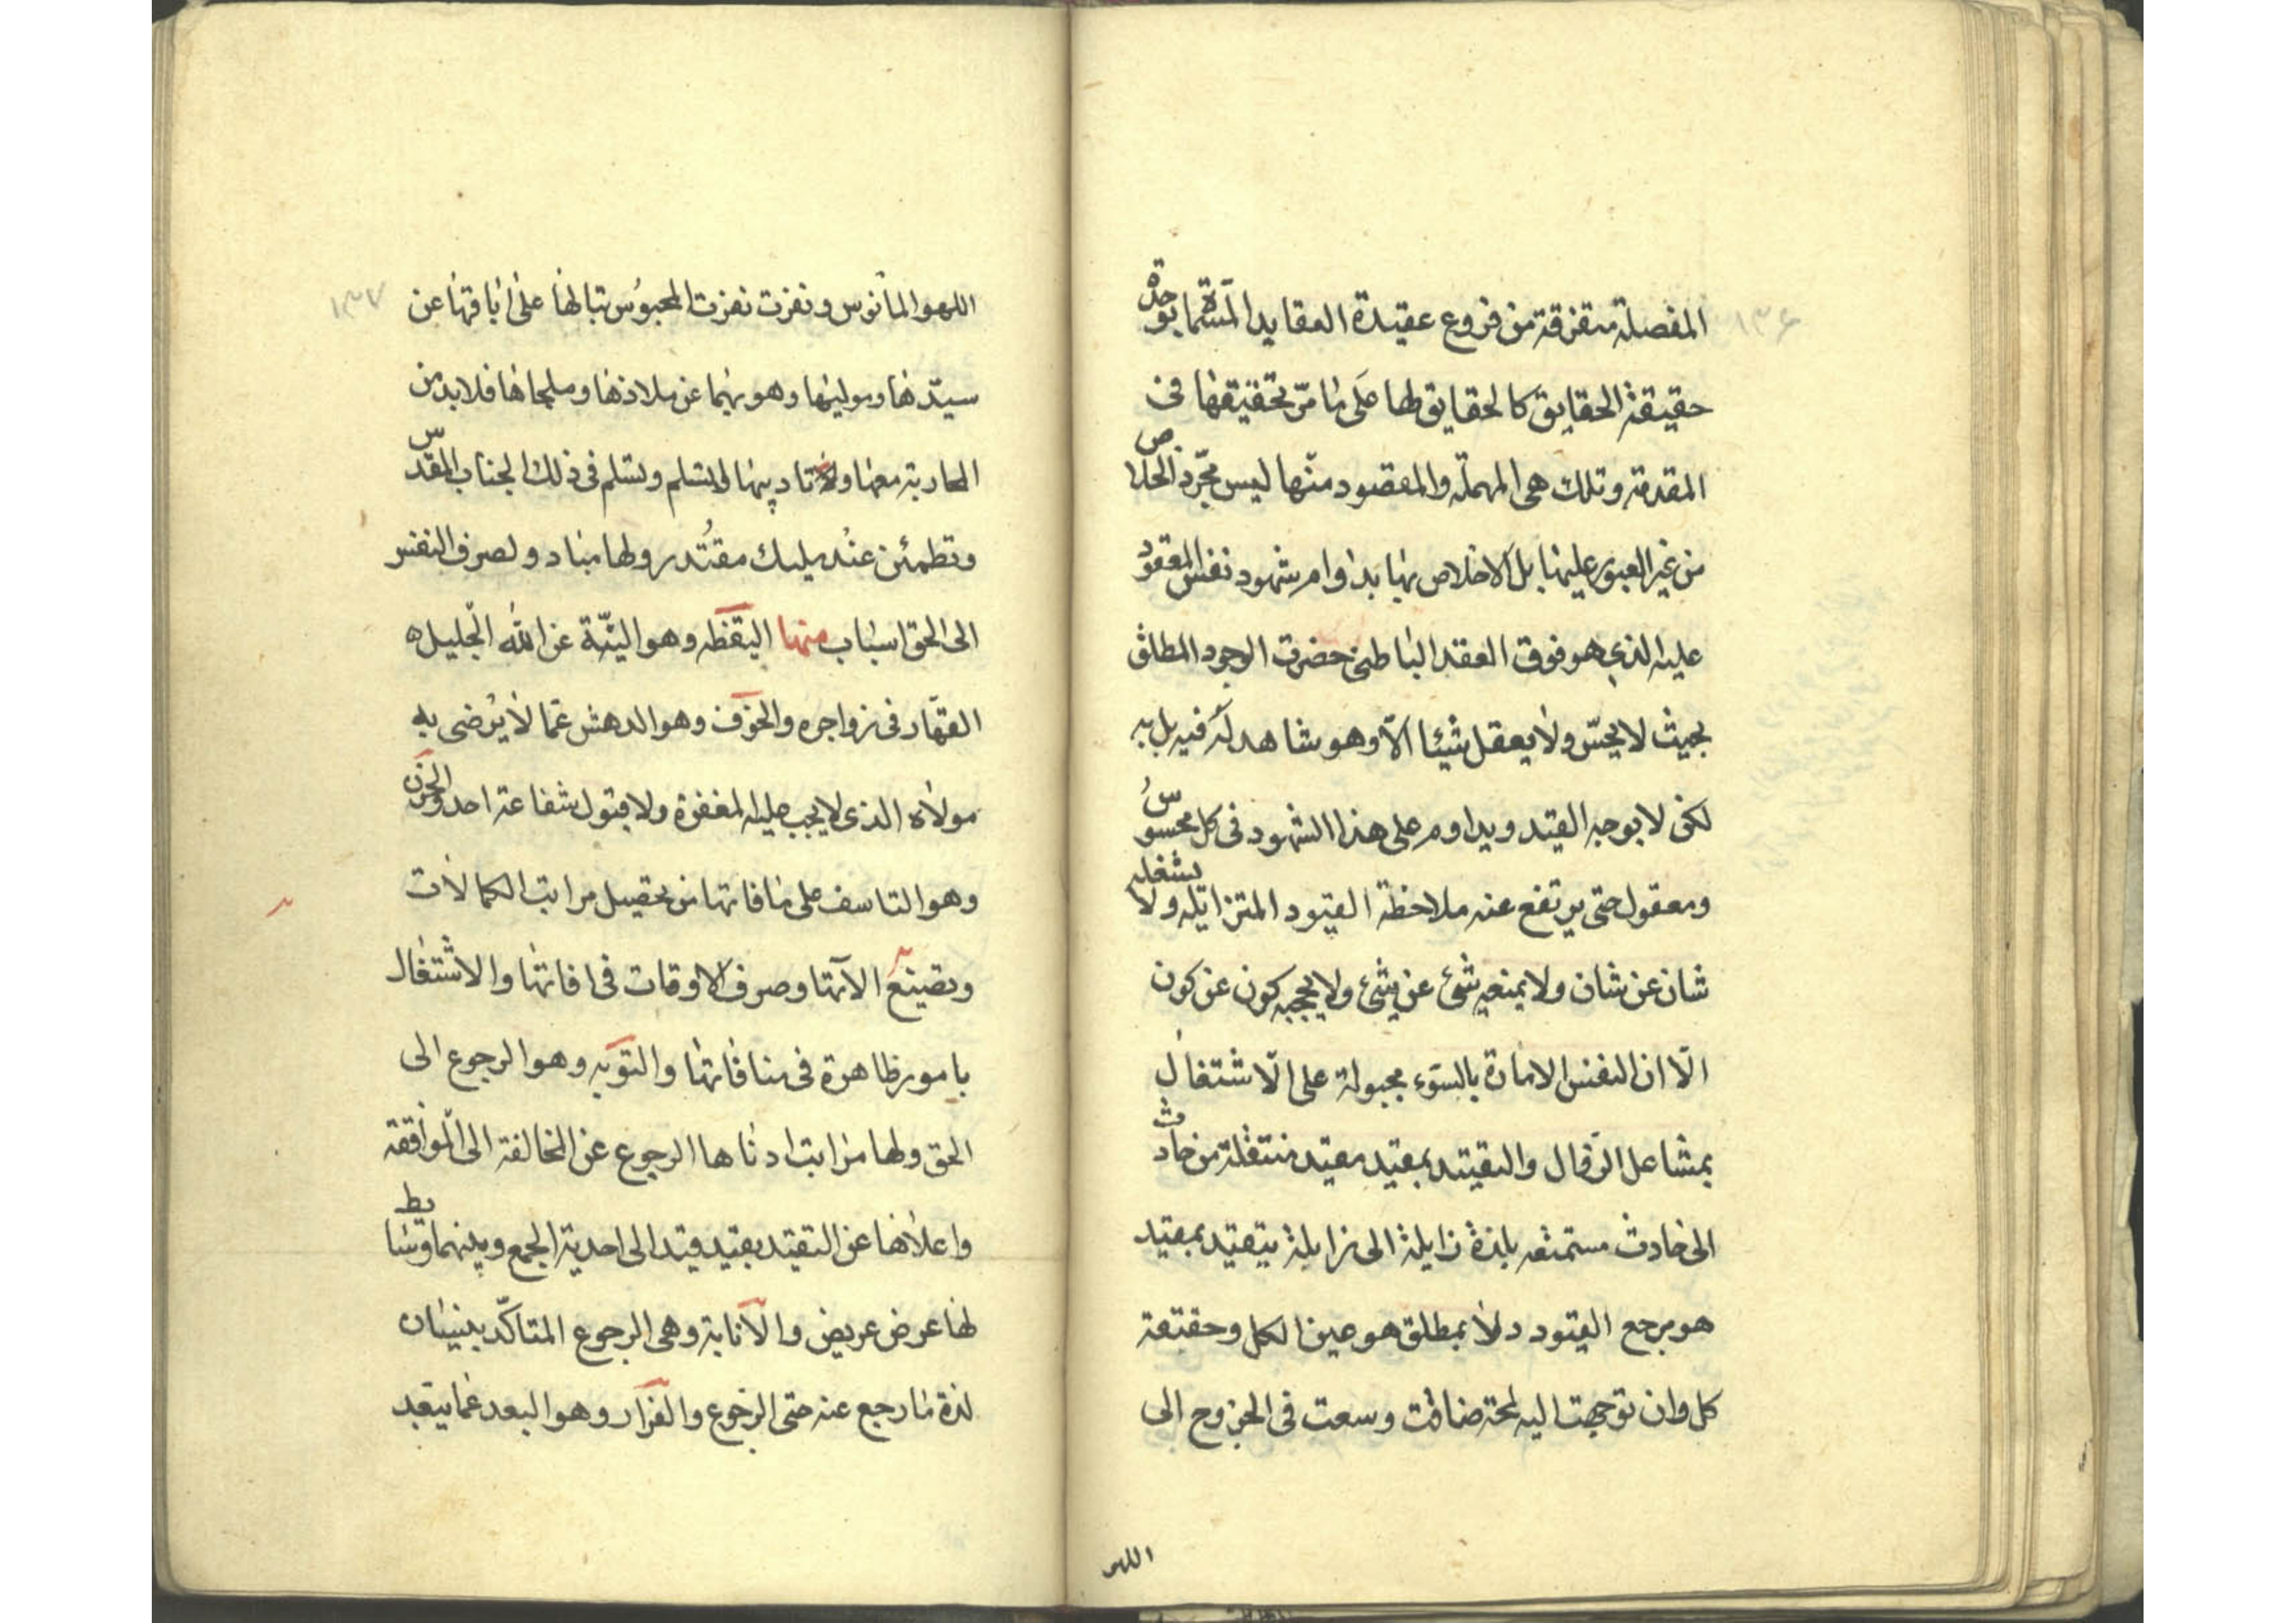 ١٣٦
المفصلة متفرقة من فروع عقيدة العقايد المسماة بوحدة
حقيقة الحقايق كالحقايق لها على ما مر تحقيقها فى
المقدمة وتلك هى المهملة والمقصود منها ليس مجرد الخلاص
من غير العبور عليها بل الاخلاص بها بداوام شهود نفس المعقود
عليه الذى هو فوق العقد الباطنى حضرت الوجود المطلق
بحيث لا يحس ولا يعقل شيئا الا وهو شاهد له فيه بل به
لكن لا بوجه القيد ويداوم على هذا الشهود فى كل محسوس
ومعقول حتى يرتفع عنه ملاحظة القيود المتزايله ولا يشغله
شان عن شان ولا يمنعه شئ عن شئ ولا يحجبه كون عن كون
الا ان النفس الامارة بالسوء مجبولة على الاشتغال
بمشاعل الزوال والتقيد بمقيد مقيد منتقلة من حادث
الى حادث مستمتعه بلذة زايلة الى زايلة يتقيد بمقيد
هو مرجع القيود ولا بمطلق هو عين الكل وحقيقة
كل وان توجهت اليه لمحة ضاقت وسعت فى الخروج الى
اللهو
١٣٧
اللهو المأنوس ونفرت نفرت المحبوس تبالها على اباقها عن
سيدها وموليها وهو بها عن ملاذها وملجاها فلا بد من
المحاربة معها ولا تاديبها لا يتسلم وتسلم فى ذلك الجناب المقدس
وتطمئن عند مليك مقتدر ولها مباد ولصرف النفس
الى الحق اسباب منها اليقظه وهو التنبه عن الله الجليل ه
القهار فى زواجره والخوف وهو الدهش عما لا يرضى به
مولاه الذى لا يجب عليه المغفرة ولا قبول شفاعة احد والحزن
وهو التاسف على ما فاتها من تحصيل مراتب الكمالات
وتضييع الآتها وصرف الاوقات فى افاتها والاشتغال
بامور ظاهرة فى منافاتها والتوبه وهو الرجوع الى
الحق ولها مراتب ادناها الرجوع عن المخالفة الى الموافقة
واعلاها عن التقيد بقيد قيد الى احدية الجمع وبينهما وسايط
لها عرض عريض والانابة وهى الرجوع المتاكد بنسيان
لذة ما رجع عنه حتى الرجوع والفرار وهو البعد عما يبعد